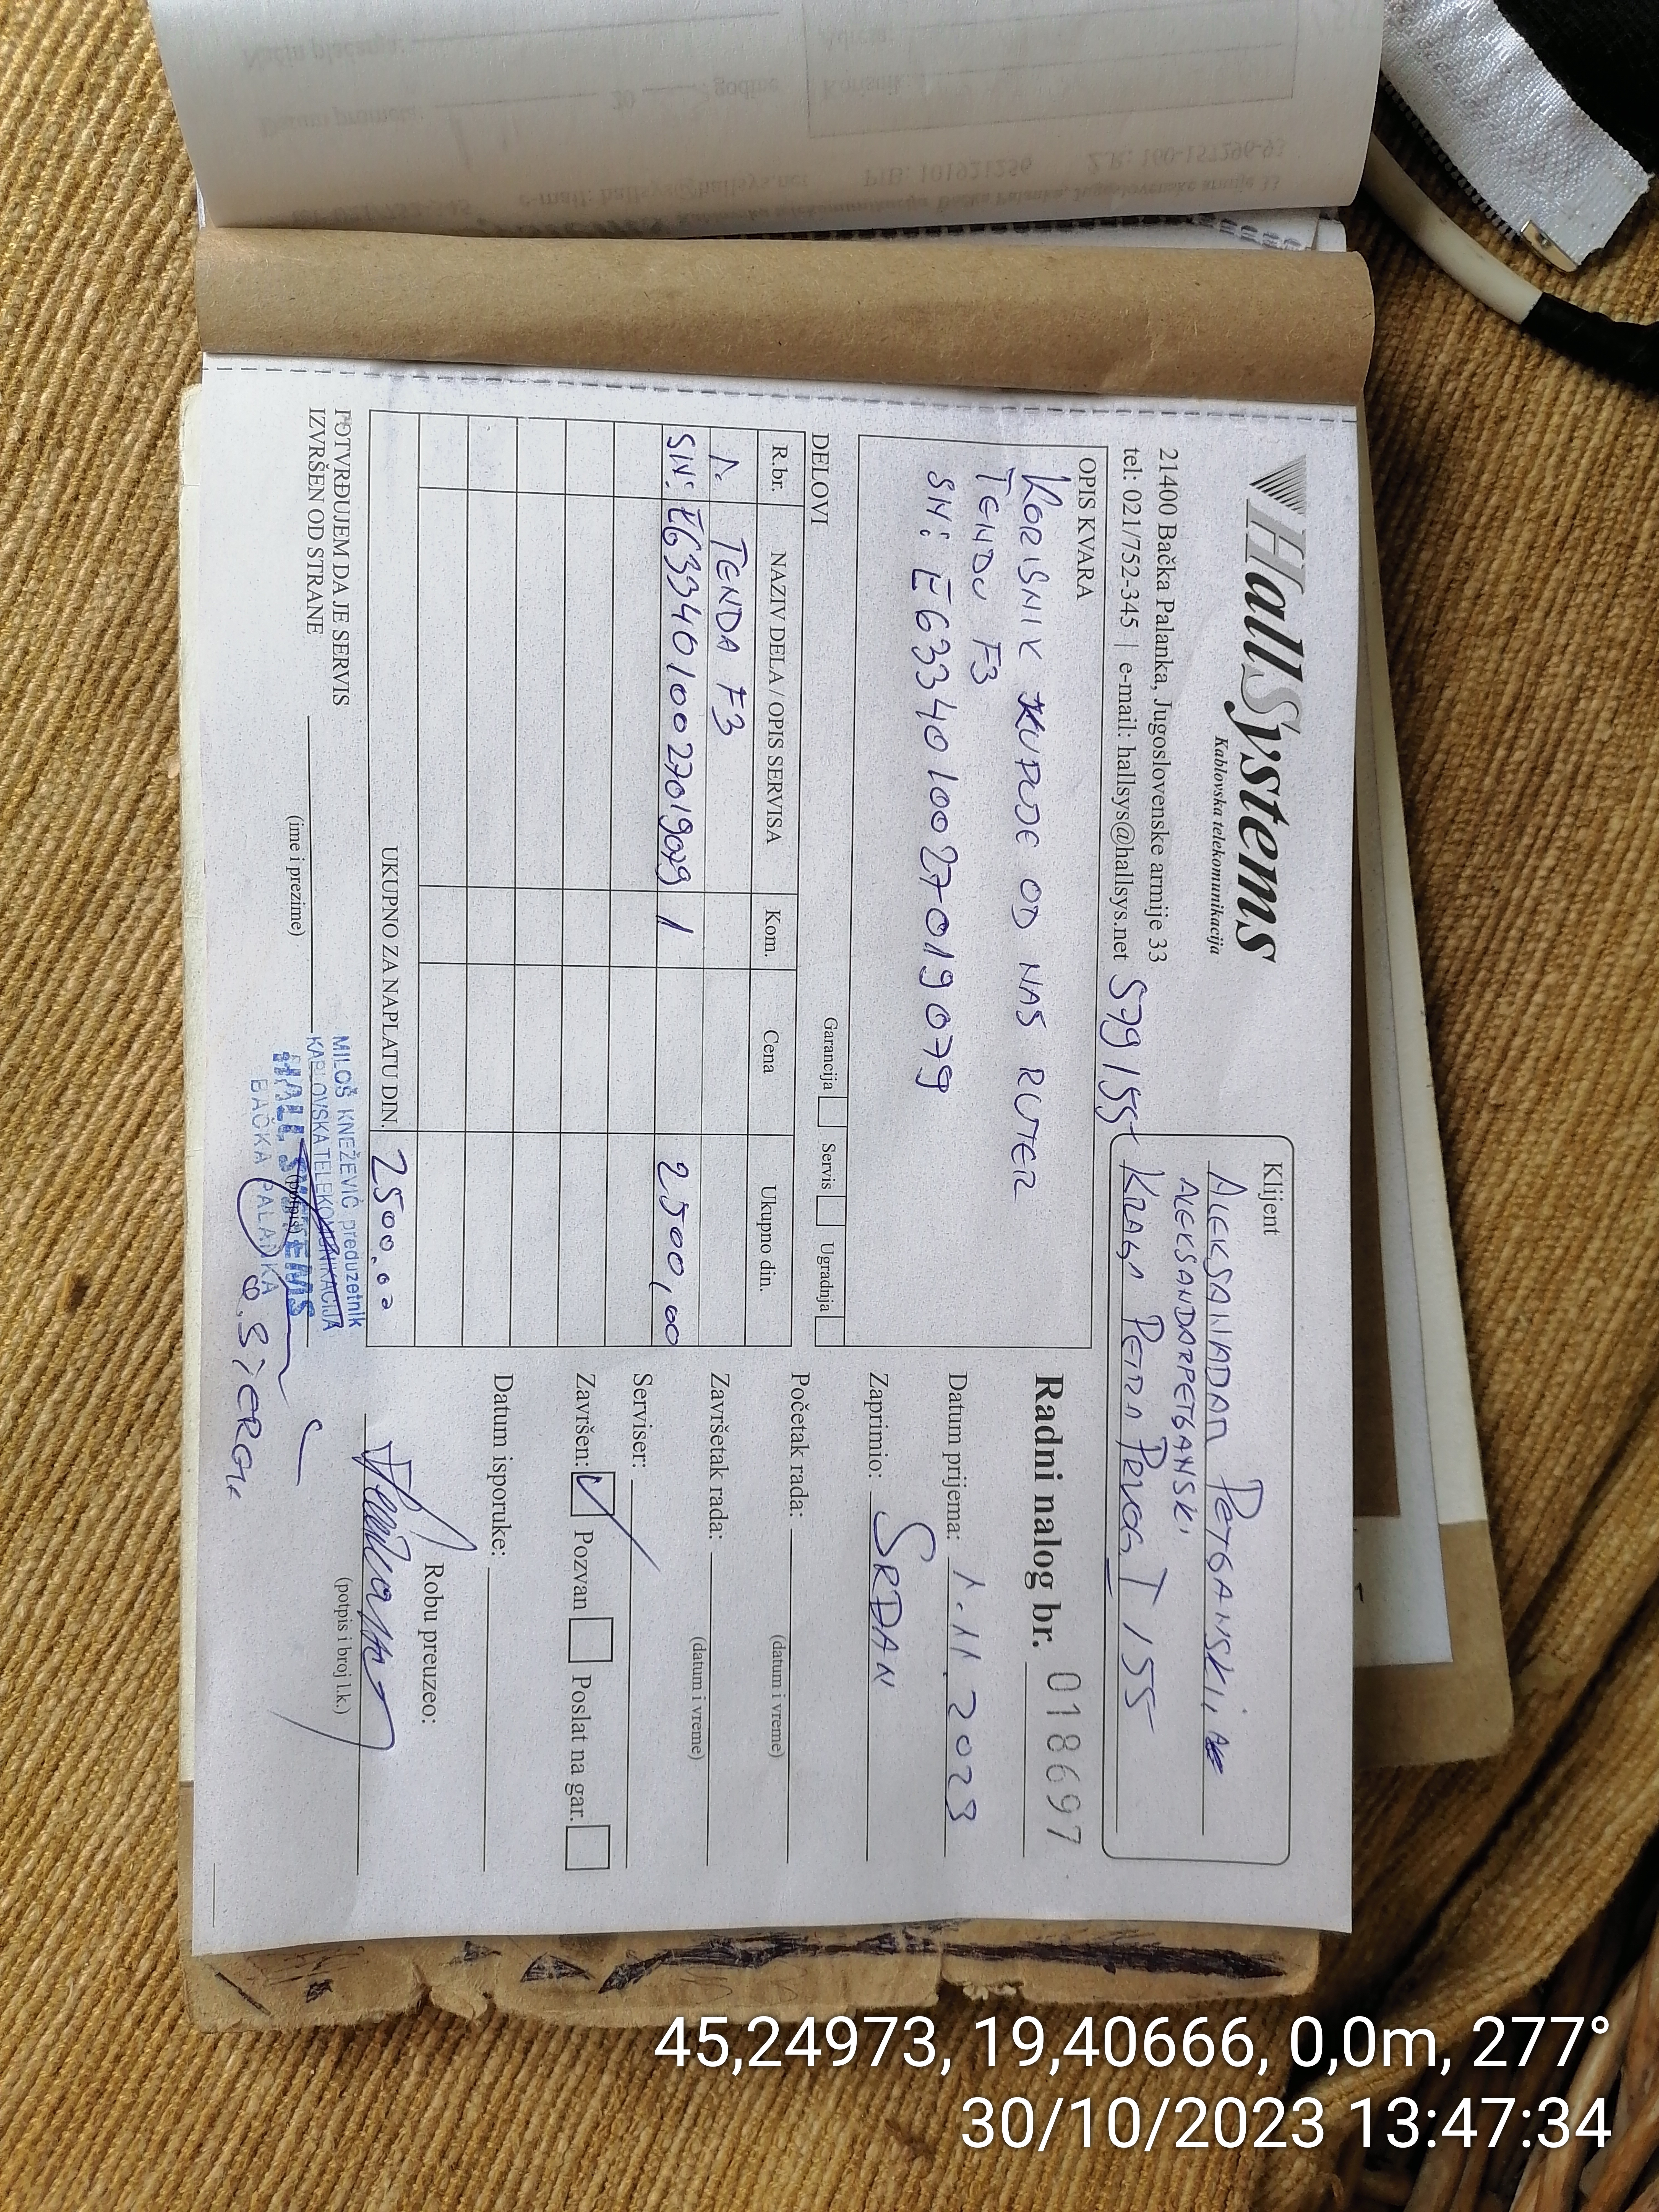 HallSystems
Kablovska telekomunikacija
21400 Bačka Palanka, Jugoslovenske armije 33
tel: 021/752-345 | e-mail: hallsys@hallsys.net 5799155
Klijent
ALEKSANDAR PETGANSKI
ALEKSANDARPETGANSKI
KRAGA PETRA PRVOG I 155
OPIS KVARA
KORISNIK KUPUJE OD NAS RUTER
TENDU F3
SN: E6334010027019079
Radni nalog br. 018697
Datum prijema: 1.11.2023
Zaprimio: SRDAN
Garancija Servis Ugradnja
DELOVI
R.br. NAZIV DELA / OPIS SERVISA Kom. Cena Ukupno din.
1. TENDA F3
SN: E6334010027019079 1 2500,00
UKUPNO ZA NAPLATU DIN. 2500.00
Početak rada:
(datum i vreme)
Završetak rada:
(datum i vreme)
Serviser:
Završen: Pozvan Poslat na gar.
Datum isporuke:
Robu preuzeo:
(potpis i broj l.k.)
POTVRĐUJEM DA JE SERVIS
IZVRŠEN OD STRANE
(ime i prezime)
(potpis)
MILOŠ KNEŽEVIĆ preduzetnik
KABLOVSKA TELEKOMUNIKACIJA
HALL SYSTEMS
BAČKA PALANKA
45,24973, 19,40666, 0,0m, 277°
30/10/2023 13:47:34